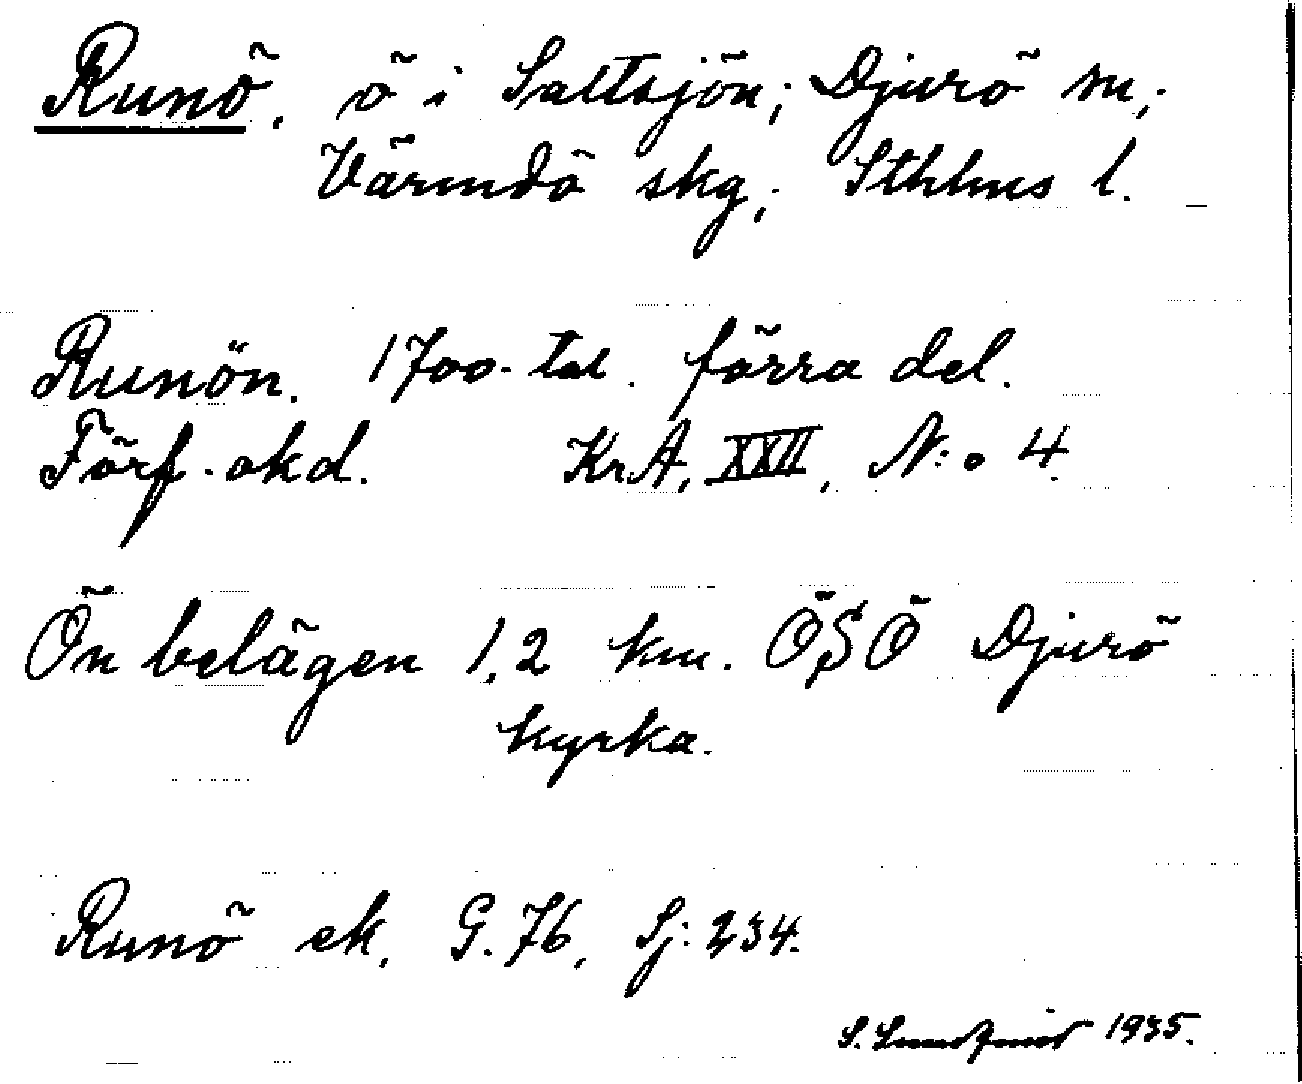 Runö, ö i Saltsjön; Djurö sn;
Värmdö skg; Sthlms l.
Runön. 1700-tal. förra del.
Förf. okd. KrA, XXII, N:o 4.
Ön belägen 1,2 km. ÖSÖ Djurö
kyrka.
Runö ek. G. 76, Sj: 234.
S. Lundqvist 1935.